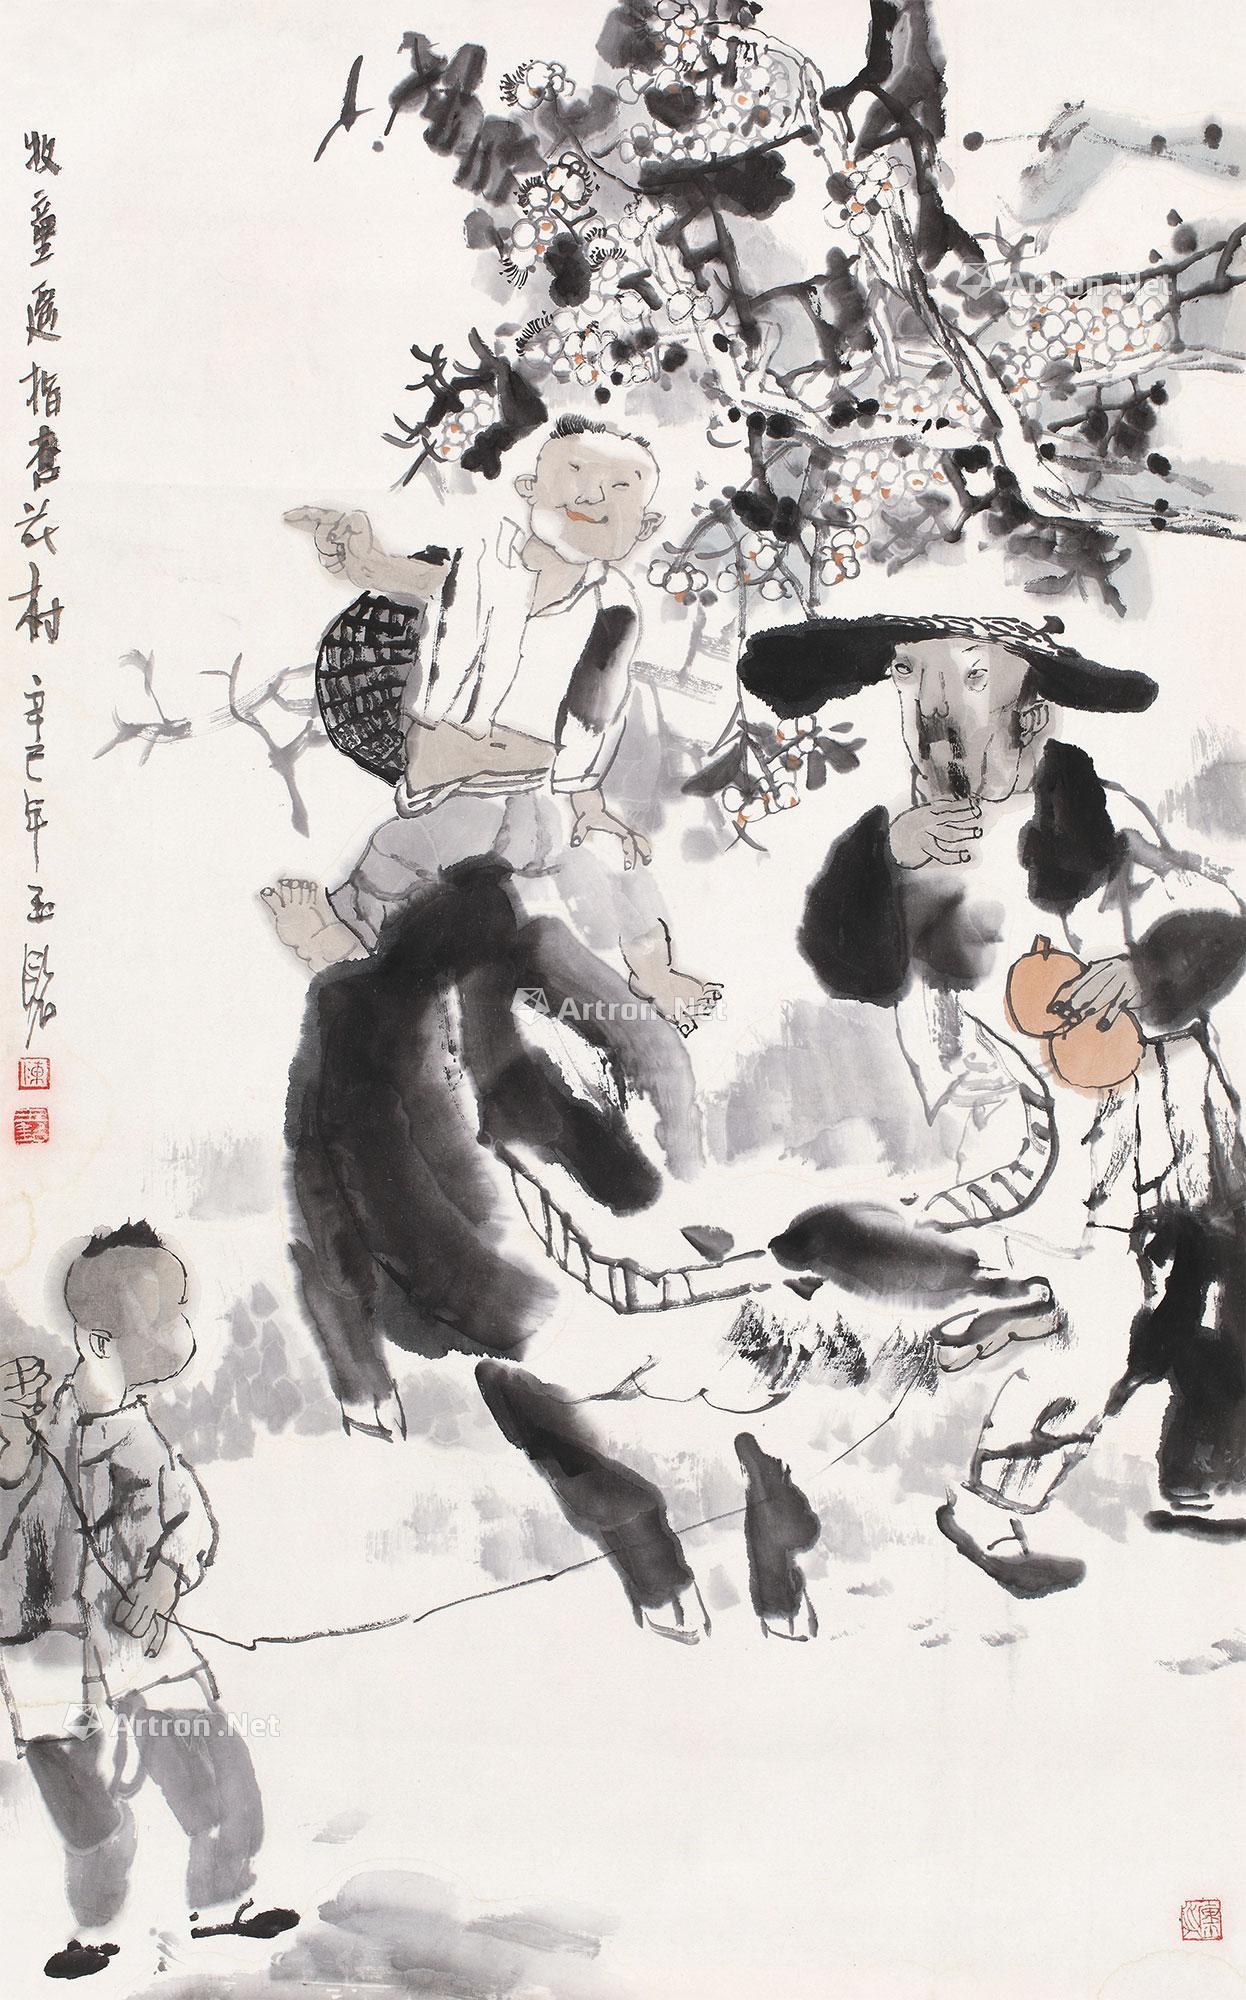 牧童遥指杏花村 辛巳年玉铭
陳
Artron.Net
Artron.Net
Artron.Net